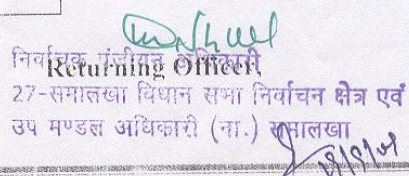 निर्वाचक पंजीयन अधिकारी
Returning Officer,
27-समालखा विधान सभा निर्वाचन क्षेत्र एवं
उप मण्डल अधिकारी (ना.) समालखा